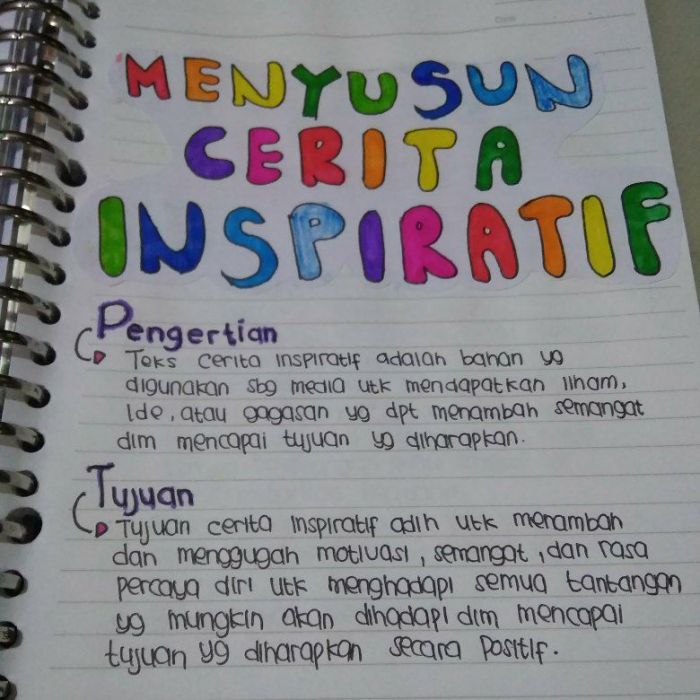 MENYUSUN
CERITA
INSPIRATIF
Pengertian
Teks cerita inspiratif adalah bahan yg
digunakan sbg media utk mendapatkan ilham,
Ide, atau gagasan yg dpt menambah semangat
dlm mencapai tujuan yg diharapkan.
Tujuan
Tujuan cerita inspiratif adlh utk menambah
dan menggugah motivasi, semangat, dan rasa
percaya diri utk menghadapi semua tantangan
yg mungkin akan dihadapi dlm mencapai
tujuan yg diharapkan secara positif.